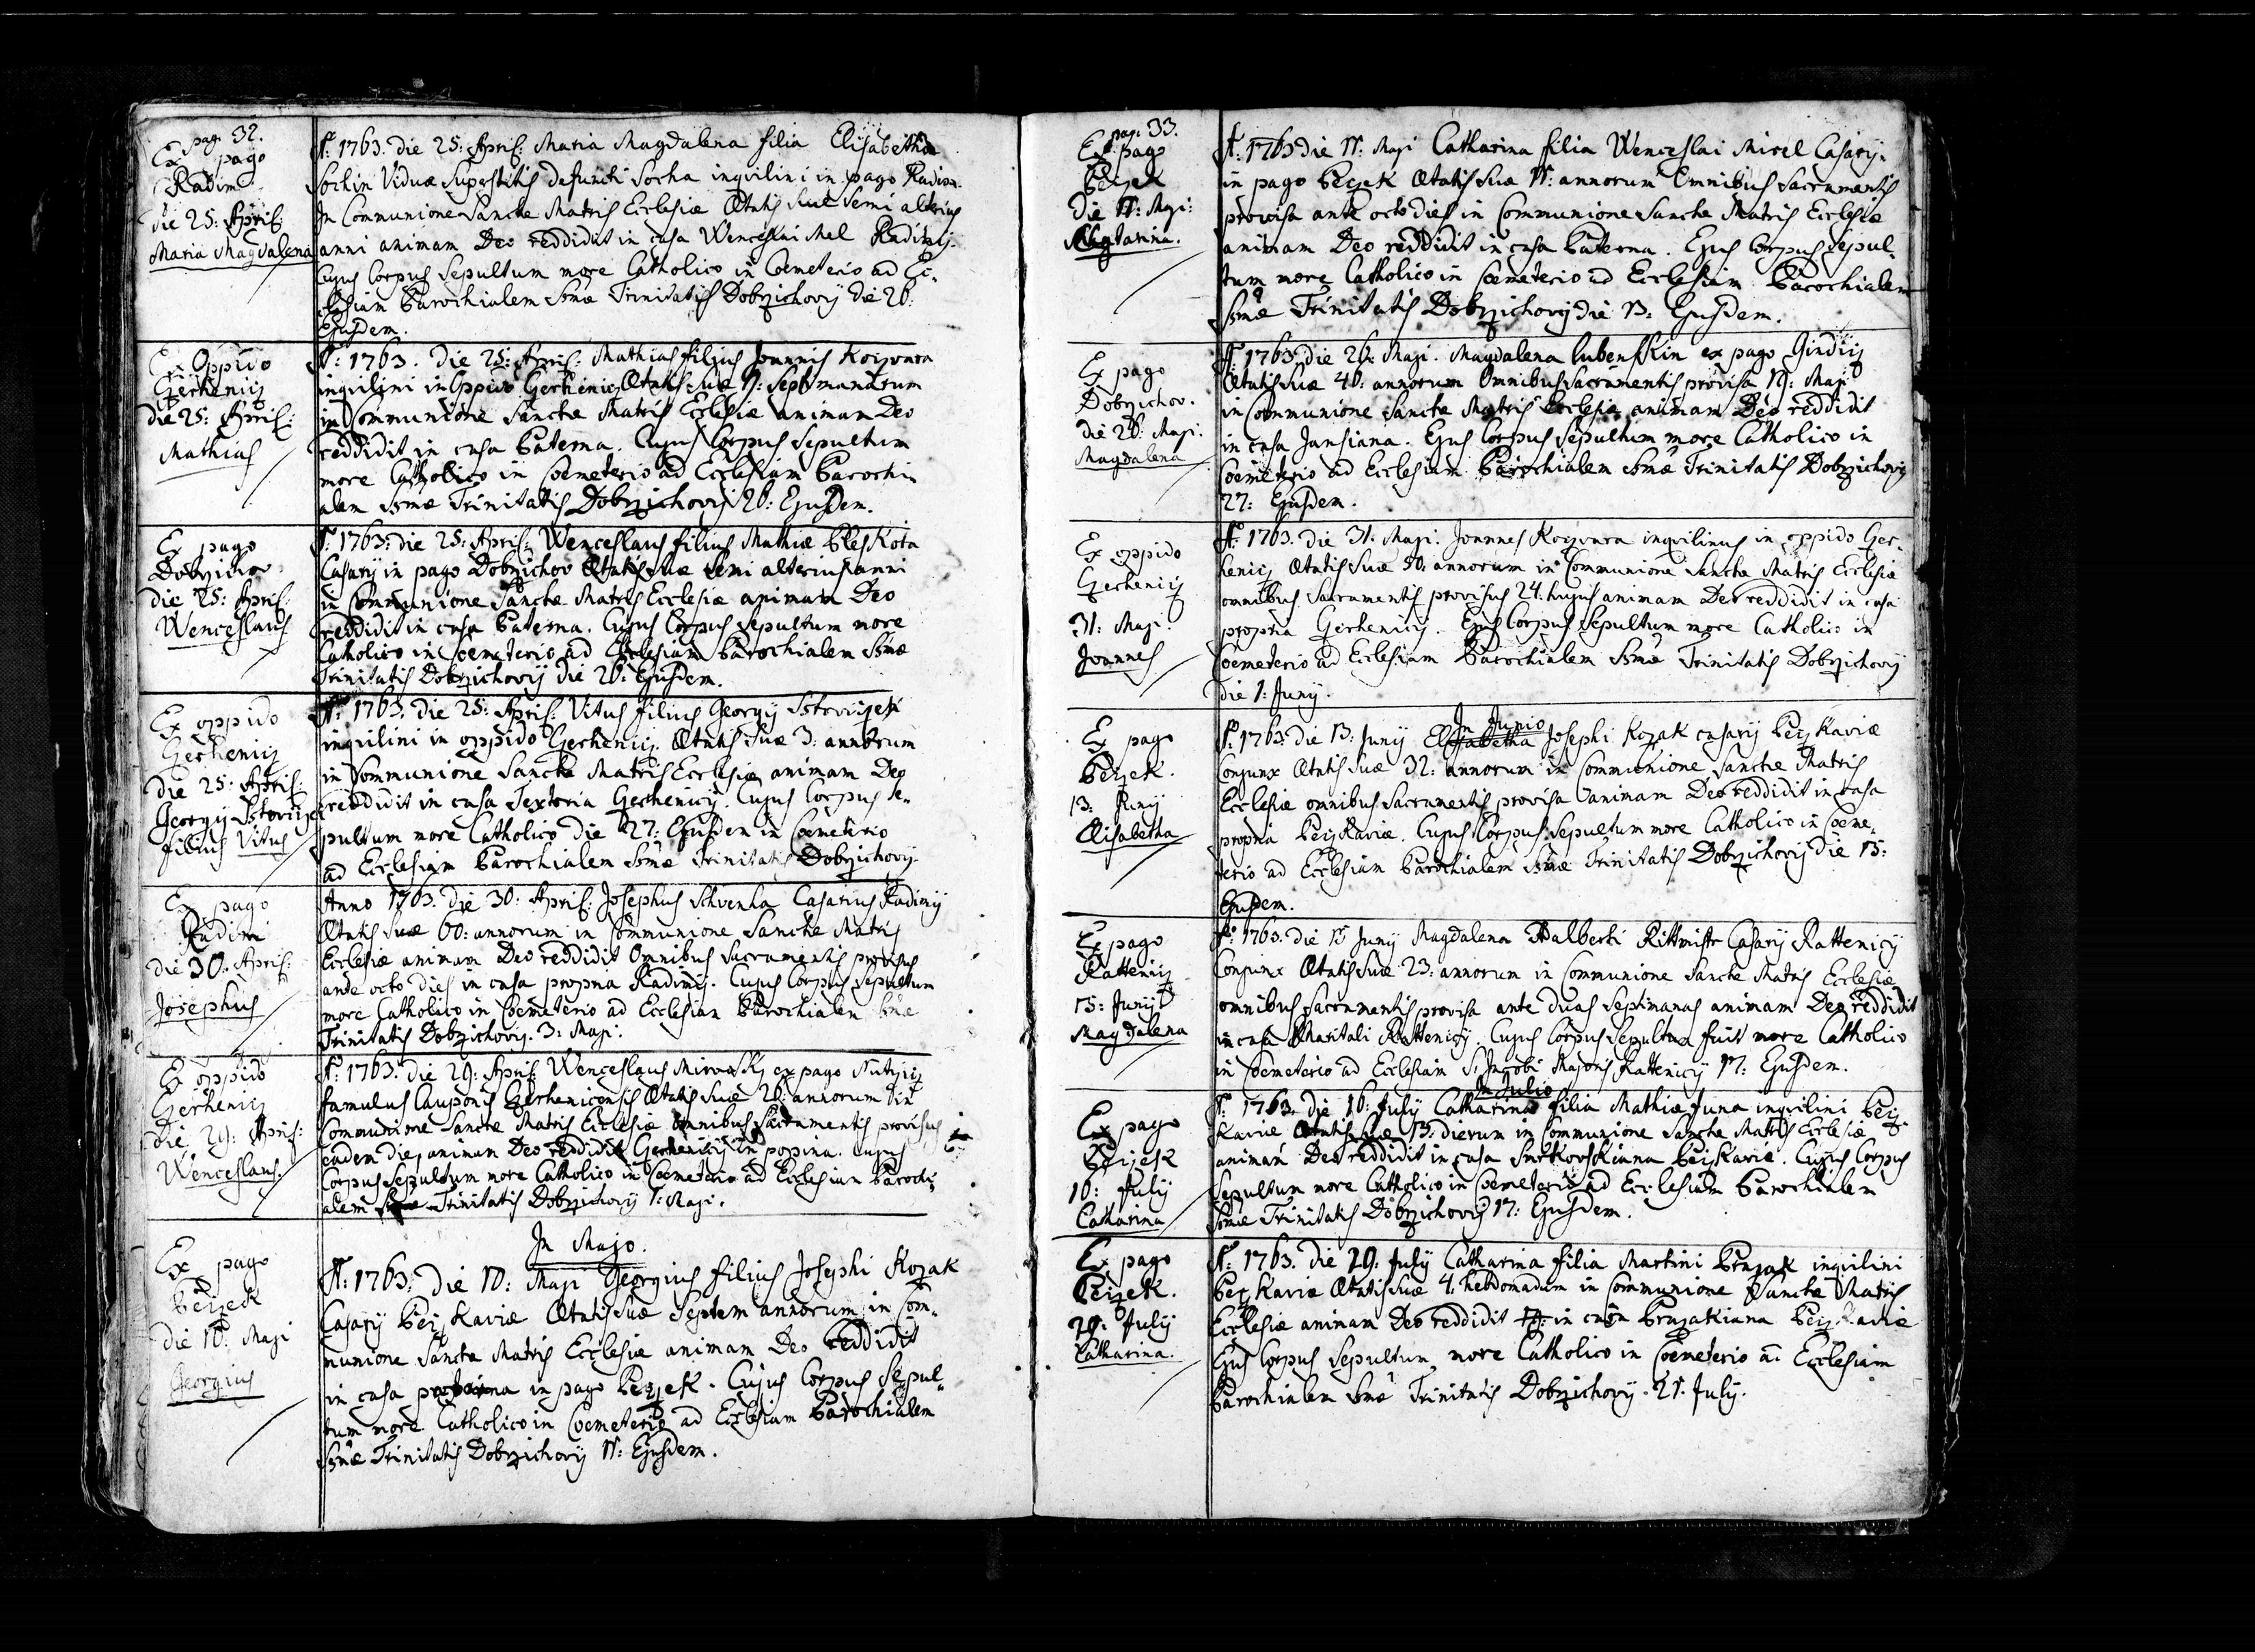 pag. 32.
Ex pago
Radim
die 25: April:
Maria Magdalena
A: 1763. die 25: April: Maria Magdalena filia Elisabetha
Sochin Viduæ Superstitis defuncti Socha inqvilini in pago Radim.
In Communione Sanctæ Matris Ecclesiæ Ætatis suæ Semi alterius
anni animam Deo reddidit in casa Wenceslai Mel Radimij.
Cujus Corpus Sepultum more Catholico in Coemeterio ad Ec-
clesiam Parochialem Ssmæ Trinitatis Dobrzichovij die 26:
Ejusdem.
Ex Oppido
Gerhenicz
die 25: April:
Mathias
A: 1763. die 25: April: Mathias filius Joannis
inqvilini in Oppido Gerhenicz Ætatis suæ 9: Septimanarum
in Communione Sanctæ Matris Ecclesiæ animam Deo
reddidit in casa Paterna. Cujus Corpus Sepultum
more Catholico in Coemeterio ad Ecclesiam Parochi-
alem Ssmæ Trinitatis Dobrzichovij 26: Ejusdem.
Ex pago
Dobrzichov
die 25: April:
Wenceslaus
A: 1763: die 25: April: Wenceslaus filius Mathiæ Pleskota
Casarij in pago Dobrzichov Ætatis suæ semi alterius anni
in Communione Sanctæ Matris Ecclesiæ animam Deo
reddidit in casa Paterna. Cujus Corpus sepultum more
Catholico in Coemeterio ad Ecclesiam Parochialem Ssmæ
Trinitatis Dobrzichovij die 26: Ejusdem.
Ex oppido
Gerhenicz
die 25: April:
Georgij
filius Vitus
A: 1763. die 25: April: Vitus filius Georgij
inqvilini in oppido Gerhenicz. Ætatis suæ 3: annorum
in Communione Sanctæ Matris Ecclesiæ animam Deo
reddidit in casa Textoria Gerhenicij. Cujus Corpus se-
pultum more Catholico die 27: Ejusdem in Coemeterio
ad Ecclesiam Parochialem Ssmæ Trinitatis Dobrzichovij
Ex pago
Radim
die 30. April:
Josephus
Anno 1763. die 30: April: Josephus Schvenha Casarius Radimij
Ætatis suæ 60: annorum in Communione Sanctæ Matris
Ecclesiæ animam Deo reddidit Omnibus Sacramentis provisus
ante octo dies in casa propria Radimij. Cujus Corpus Sepultum
more Catholico in Coemeterio ad Ecclesiam Parochialem Ssmæ
Trinitatis Dobrzichovij. 3: Maji.
Ex oppido
Gerhenicz
die 29: April:
Wenceslaus.
A: 1763. die 29: April: Wenceslaus ex pago
famulus Cauponis Gerhenicensis Ætatis suæ 26: annorum in
Communione Sanctæ Matris Ecclesiæ omnibus Sacramentis provisus
eadem die, animam Deo reddidit Gerhenicij in popina. Cujus
Corpus Sepultum more Catholico in Coemeterio ad Ecclesiam Parochi-
alem Ssmæ Trinitatis Dobrzichovij 1: Maji.
Ex pago
Peczek
die 10: Maji
Georgius
In Majo.
A: 1763: die 10: Maji Georgius filius Josephi Kozak
Casarij Peczkaviæ Ætatis suæ Septem annorum in Com-
munione Sanctæ Matris Ecclesiæ animam Deo reddidit
in casa in pago Peczek. Cujus Corpus Sepul-
tum more Catholico in Coemeterio ad Ecclesiam Parochialem
Ssmæ Trinitatis Dobrzichovij 11: Ejusdem.
pag. 33.
Ex pago
Peczek
die 11: Maji:
Catharina.
A: 1763 die 11: Maji Catharina filia Wenceslai Misel Casarij
in pago Peczek Ætatis suæ 11: annorum Omnibus Sacramentis
provisa ante octo dies in Communione Sanctæ Matris Ecclesiæ
animam Deo reddidit in casa Paterna. Ejus Corpus Sepul-
tum more Catholico in Coemeterio ad Ecclesiam Parochialem
Ssmæ Trinitatis Dobrzichovij die 13: Ejusdem.
Ex pago
Dobrzichov.
die 26: Maji.
Magdalena
A: 1763 die 26: Maji. Magdalena Lubenskin ex pago
Ætatis suæ 46: annorum Omnibus Sacramentis provisa 19: Maji
in Communione Sanctæ Matris Ecclesiæ animam Deo reddidit
in casa Jansiana. Ejus Corpus sepultum more Catholico in
Coemeterio ad Ecclesiam Parochialem Ssmæ Trinitatis Dobrzichovij
27: Ejusdem.
Ex oppido
Gerhenicz
31: Maji.
Joannes
A: 1763. die 31: Maji. Joannes inqvilinus in oppido Ger-
henicz Ætatis suæ 50: annorum in Communione Sanctæ Matris Ecclesiæ
omnibus Sacramentis provisus 24. hujus animam Deo reddidit in casa
propria Gerhenicij. Ejus Corpus Sepultum more Catholico in
Coemeterio ad Ecclesiam Parochialem Ssmæ Trinitatis Dobrzichovij
die 1: Junij.
In Junio
Ex pago
Peczek.
13: Junij
Elisabetha
A: 1763. die 13: Junij Elisabetha Josephi Kozak casarij Peczkaviæ
Conjunx Ætatis suæ 32: annorum in Communione sanctæ Matris
Ecclesiæ omnibus Sacramentis provisa animam Deo reddidit in casa
propria Peczkaviæ. Cujus Corpus Sepultum more Catholico in Coeme-
terio ad Ecclesiam Parochialem Ssmæ Trinitatis Dobrzichovij die 15:
Ejusdem.
Ex pago
Rattenicz
15: Junij
Magdalena
A: 1763. die 15 Junij Magdalena Adalberti Rittmistr Casarij Rattenicij
Conjunx Ætatis suæ 23: annorum in Communione Sanctæ Matris Ecclesiæ
omnibus Sacramentis provisa ante duas septimanas animam Deo reddidit
in casa Maritali Rattenicij. Cujus Corpus Sepultum fuit more Catholico
in Coemeterio ad Ecclesiam S. Jacobi Majoris Rattenicij 17: Ejusdem.
In Julio
Ex pago
Peczek
16: July
Catharina
A: 1763. die 16: July Catharina filia Mathiæ Juna inqvilini Pecz-
kaviæ Ætatis suæ 13: dierum in Communione Sanctæ Matris Ecclesiæ
animam Deo reddidit in casa Smrkovskiana Peczkaviæ. Cujus Corpus
sepultum more Catholico in Coemeterio ad Ecclesiam Parochialem
Ssmæ Trinitatis Dobrzichovij 17: Ejusdem.
Ex pago
Peczek.
19: July
Catharina.
A: 1763. die 19: July Catharina filia Martini inqvilini
Peczkaviæ Ætatis suæ 4: hebdomadum in Communione Sanctæ Matris
Ecclesiæ animam Deo reddidit in casa Peczkaviæ
Ejus Corpus Sepultum more Catholico in Coemeterio ad Ecclesiam
Parochialem Ssmæ Trinitatis Dobrzichovij. 21. July.